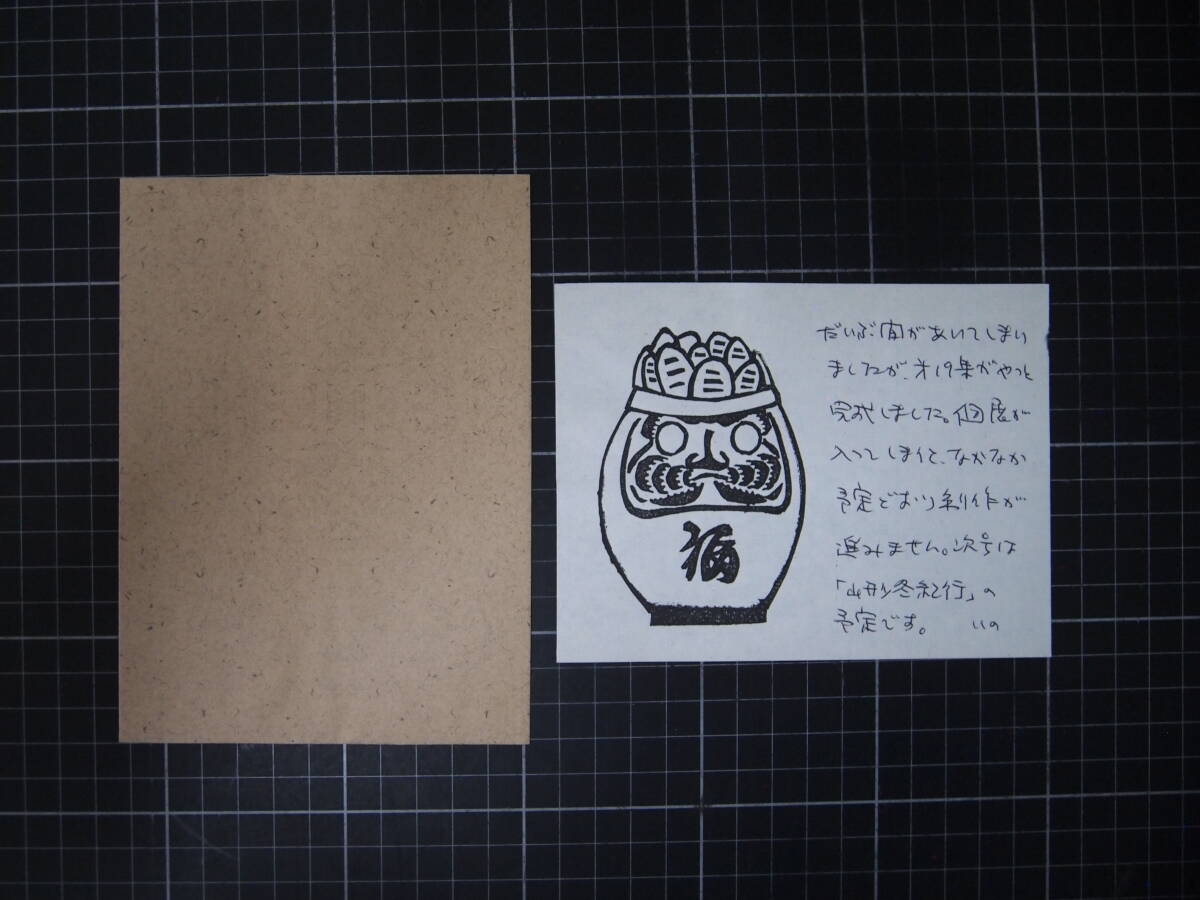 福
だいぶ間があいてしまい
ましたが、オ19集がやっと
完成しました。個展が
入ってしまうと、なかなか
予定どおり制作が
進みません。次号は
「山形冬紀行」の
予定です。 いの